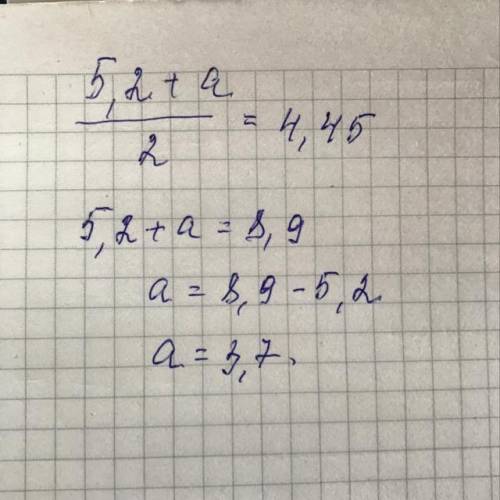 (5,2 + a)/2 = 4,45
5,2 + a = 8,9
a = 8,9 - 5,2
a = 3,7.